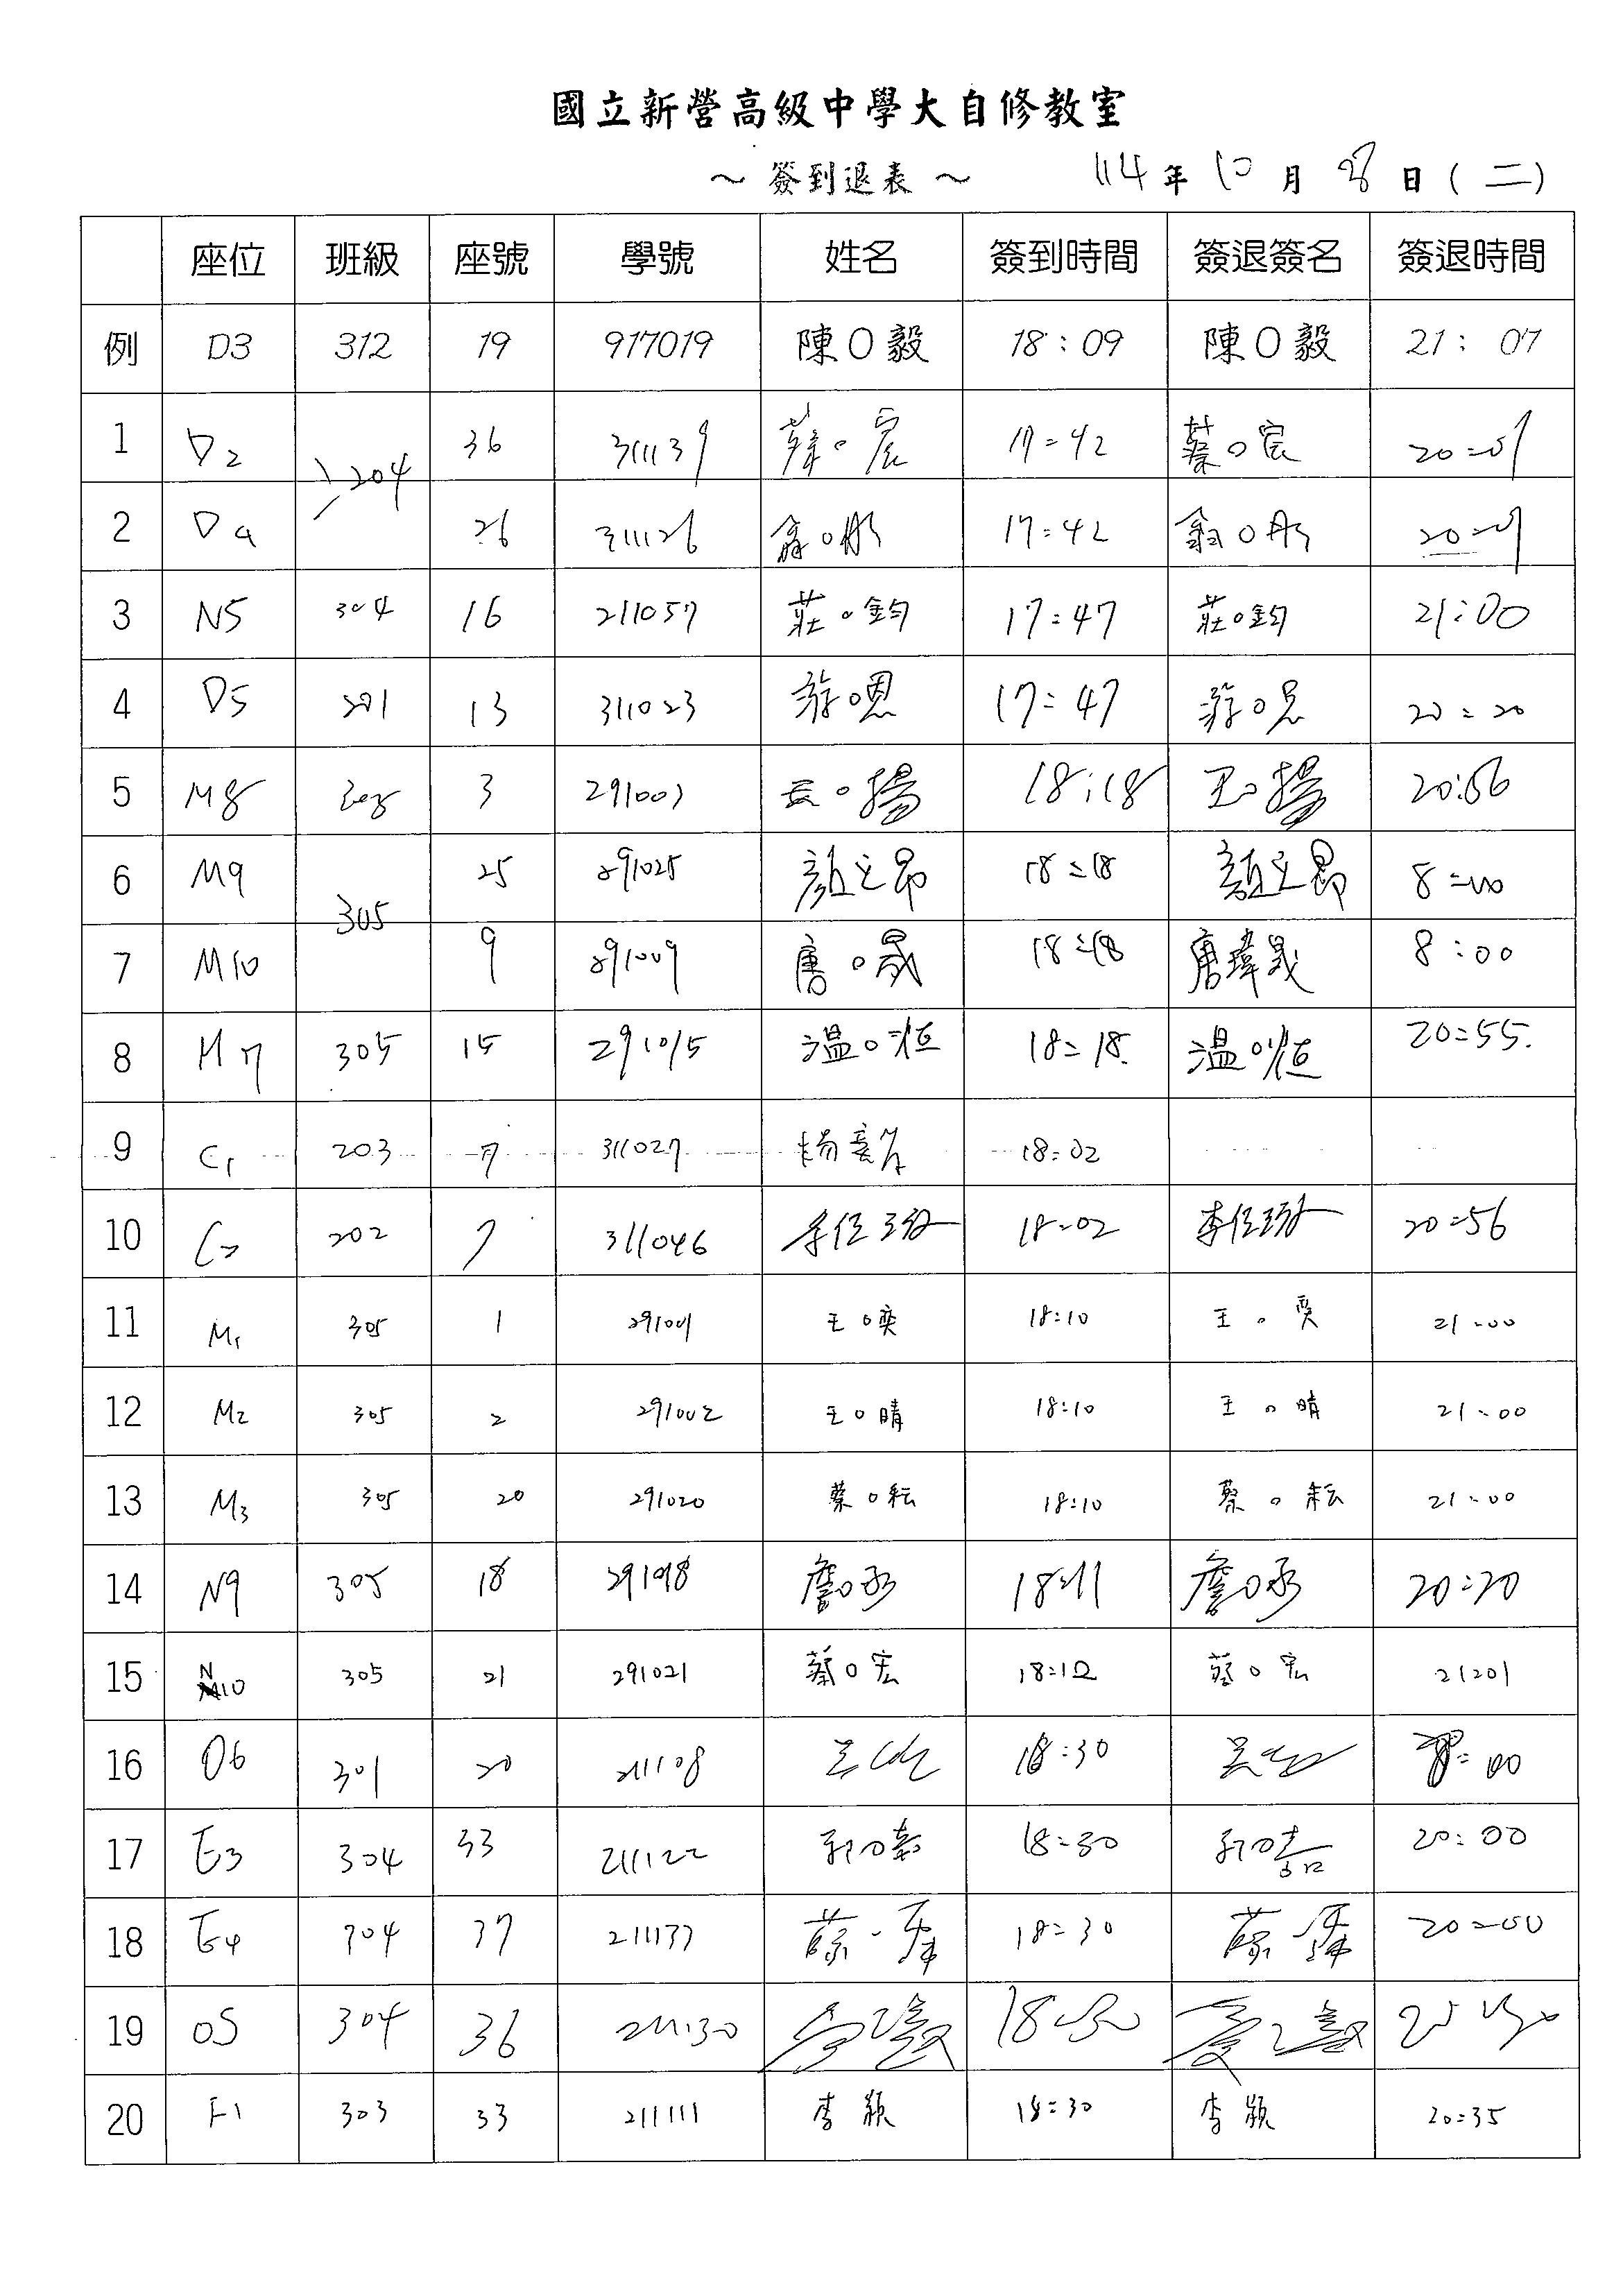 國立新營高級中學大自修教室
～ 簽到退表 ～ 114 年 10 月 28 日 (二)
座位 班級 座號 學號 姓名 簽到時間 簽退簽名 簽退時間
例 D3 312 19 917019 陳O毅 18:09 陳O毅 21:07
1 D2 204 36 311139 蔡O宸 17:42 蔡O宸 20:09
2 D4 26 311126 翁O彤 17:42 翁O彤 20:09
3 N5 304 16 211057 莊O鈞 17:47 莊O鈞 21:00
4 D5 201 13 311023 游O恩 17:47 游O恩 20:20
5 M8 305 3 291003 王O揚 18:18 王O揚 20:56
6 M9 305 25 291025 顏立昂 18:18 顏立昂 8:00
7 M10 9 291009 唐O晟 18:18 唐瑋晟 8:00
8 M7 305 15 291015 溫O恒 18:18 溫O恒 20:55
9 C1 203 7 311027 楊 18:02
10 C2 202 7 311046 李任 18:02 李任 20:56
11 M1 305 1 291001 王O奕 18:10 王O奕 21:00
12 M2 305 2 291002 王O晴 18:10 王O晴 21:00
13 M3 305 20 291020 蔡O耘 18:10 蔡O耘 21:00
14 N9 305 18 291018 詹O丞 18:11 詹O丞 20:20
15 N10 305 21 291021 蔡O宏 18:12 蔡O宏 21:01
16 O6 301 20 211108 吳 18:30 吳 8:00
17 E3 304 33 211122 郭O嘉 18:30 郭O嘉 20:00
18 E4 304 37 211137 蔡 18:30 蔡 20:00
19 O5 304 36 211130 18:30
20 F1 303 33 211111 李 穎 18:30 李 穎 20:35